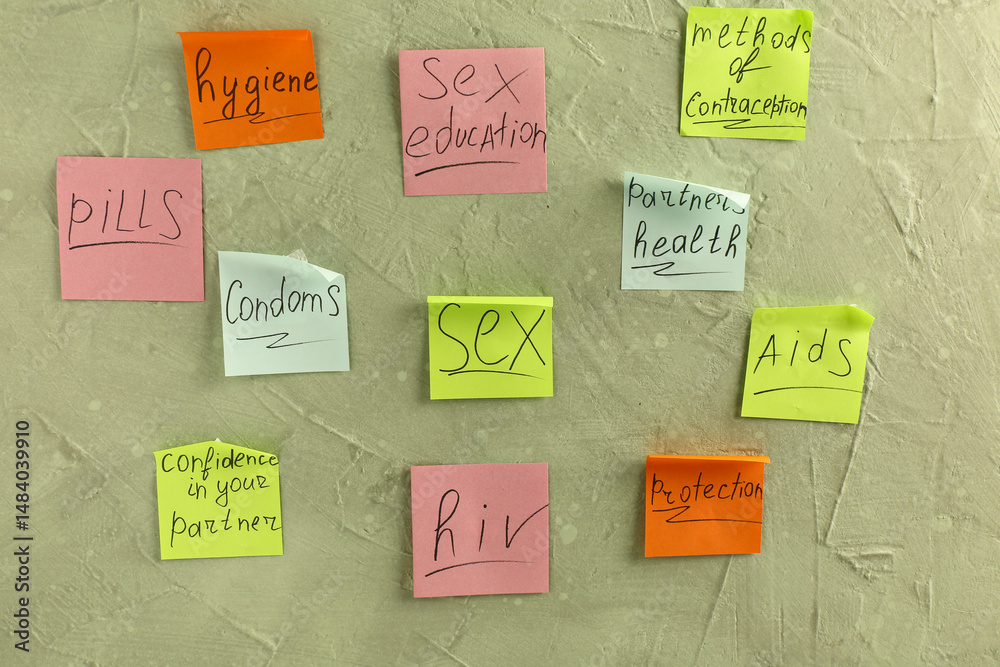 hygiene
sex
education
methods
of
contraception
pills
partner's
health
Condoms
sex
Aids
confidence
in your
partner
hiv
Protection
Adobe Stock | #1484039910
Adobe Stock